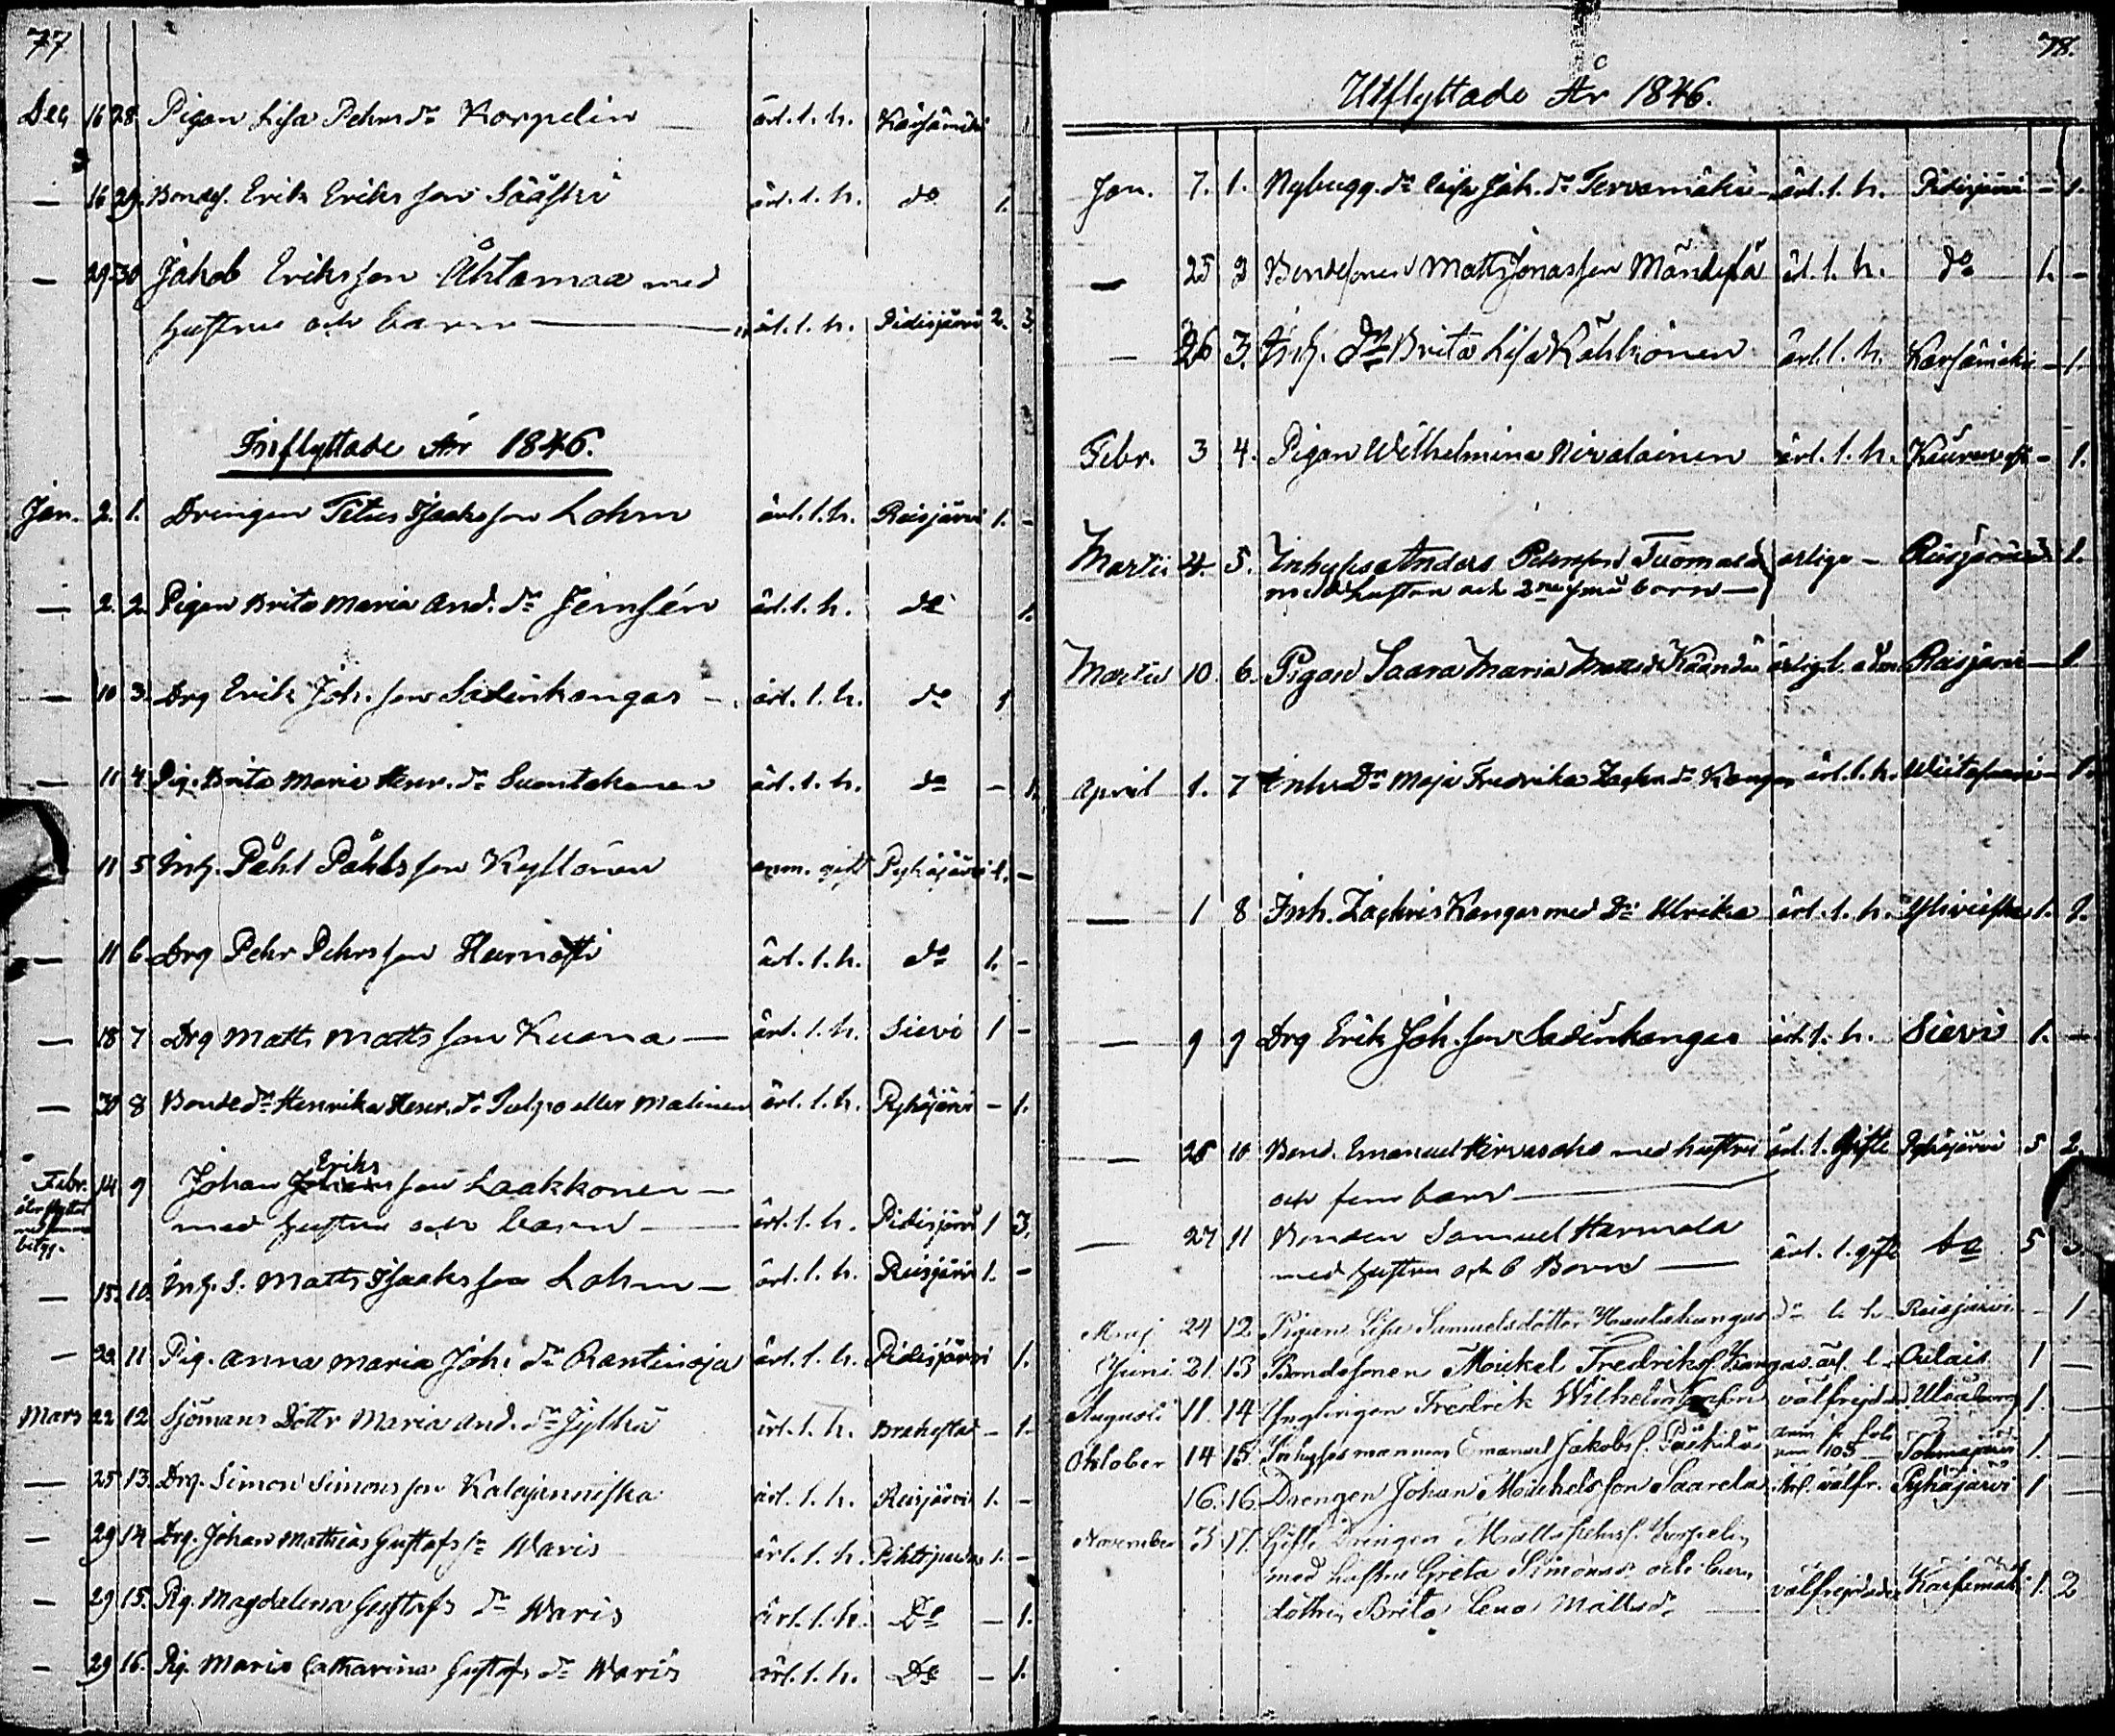 77
Dec 16 28. Pigan Lisa Pehrs dr Korpelin — ärl. l. h. Kärsämäki 1
— 16 29. Bondes. Erik Eriksson Sääski ärl. l. h. do 1.
— 29 30 Jakob Eriksson Ahtamaa med
hustru och barn — ärl. l. h. Pidisjärvi 2. 3.
Inflyttade År 1846.
Jan. 2. 1. Drängen Petus Isaksson Lohm ärl. l. h. Reisjärvi 1. -
— 2. 2. Pigan Brita Maria And. dr Jernsén ärl. l. h. do 1.
— 10 3. Drg Erik Joh. son Sadinkangas - ärl. l. h. do 1
— 11 4. Pig. Brita Maria Henr. dr ärl. l. h. do - 1.
11 5 Inh. Påhl Påhlsson Kyllönen gift Pyhäjärvi 1. -
— 11 6 Drg Pehr Pehrsson ärl. l. h. do 1. -
— 18 7 Drg Matts Mattsson Kuona — ärl. l. h. Sievi 1 -
— 30 8 Bonde dr Henrika Henr. dr eller Malinen ärl. l. h. Pyhäjärvi - 1.
Febr. 14 9 Johan Eriksson Laakkonen —
med hustru och barn — ärl. l. h. Pidisjärvi 1 3.
— 15. 10. Inh. S. Matts Isaksson Lohm — ärl. l. h. Reisjärvi 1. -
— 22. 11 Pig. Anna Maria Joh. dr Rantinoja ärl. l. h. Pidisjärvi 1.
Mars 22 12 Sjömans Dottr Maria And. dr Jylhä ärl. l. h. Brahestad - 1.
— 25 13. Drg. Simon Simonsson ärl. l. h. Reisjärvi 1. -
— 29 14 Drg. Johan Mathias Gustafs sn Waris ärl. l. h. Pihtipudas 1. -
— 29 15. Pig. Magdelena Gustafs dr Waris ärl. l. h. Do — 1.
— 29 16. Pig. Maria Catharina Gustafs dr Waris ärl. l. h. Do — 1.
78.
Utflyttade År 1846.
Jan. 7. 1. Nybygg. dr Caisa Joh. dr Tervamäki - ärl. l. h. Pidisjärvi - 1.
— 25 2 Bondesonen Matts Jonasson Mäntylä ärl. l. h. do 1. -
— 26 3. Inh. Dr Brita Lisa Kähkönen ärl. l. h. Karsämäki - 1.
Febr. 3 4. Pigan Wilhelmina Nivalainen ärl. l. h. - 1.
Martii 4. 5. Inhyses Anders Pehrsson Tuomala ärliga - Reisjärvi 1.
med hustru och 2ne små barn —
Martii 10. 6. Pigan Saara Maria Matts dr ärligt Reisjärvi — 1
April 1. 7 Inhs Dr Maja Fredrika Zachr. dr Kangas ärl. l. h. Wiitasaari — 1.
— 1 8 Inh. Zachris Kangas med Dr Ulrika ärl. l. h. Ylivieska 1. 1.
— 9 9 Drg Erik Joh. son Sadinkangas ärl. l. h. Sievi 1. —
— 26 10 Bond. Emanuel Hirvasoho med hustru ärl. l. gifte Pyhäjärvi 5 2.
och fem barn —
— 27 11 Bonden Samuel Harmala
med hustru och 6 Barn — ärl. l. gifte do 5
Maij 24 12. Pigan Lisa Samuelsdotter Hautakangas do l. h. Reisjärvi - 1
Juni 21. 13 Bondesonen Mickel Fredrikss. Kangas ärl. l. Oulais 1 —
Augusti 11. 14 Ynglingen Fredrik Wilhelm välfrejdad Uleåborg 1. —
Oktober 14 15. Inhysesmannen Emanuel Jakobs. 105 Tohmajärvi 1. —
16. 16. Drengen Johan Mickelsson Saarela Ärl. välfr. Pyhäjärvi 1 —
November 3 17. Gifte Drengen Matts Pehrs. Korpelin
med hustru Greta Simonsd. och barn
dottren Brita Lena Mattsdr — välfrejdade Karsämäki 1. 2